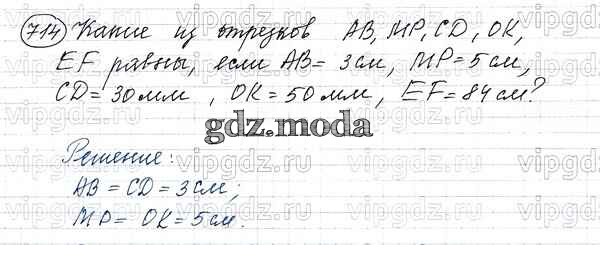 714 Какие из отрезков AB, MP, CD, OK,
EF равны, если AB = 3 см, MP = 5 см,
CD = 30 мм, OK = 50 мм, EF = 84 см?
gdz.moda
Решение:
AB = CD = 3 см;
MP = OK = 5 см.